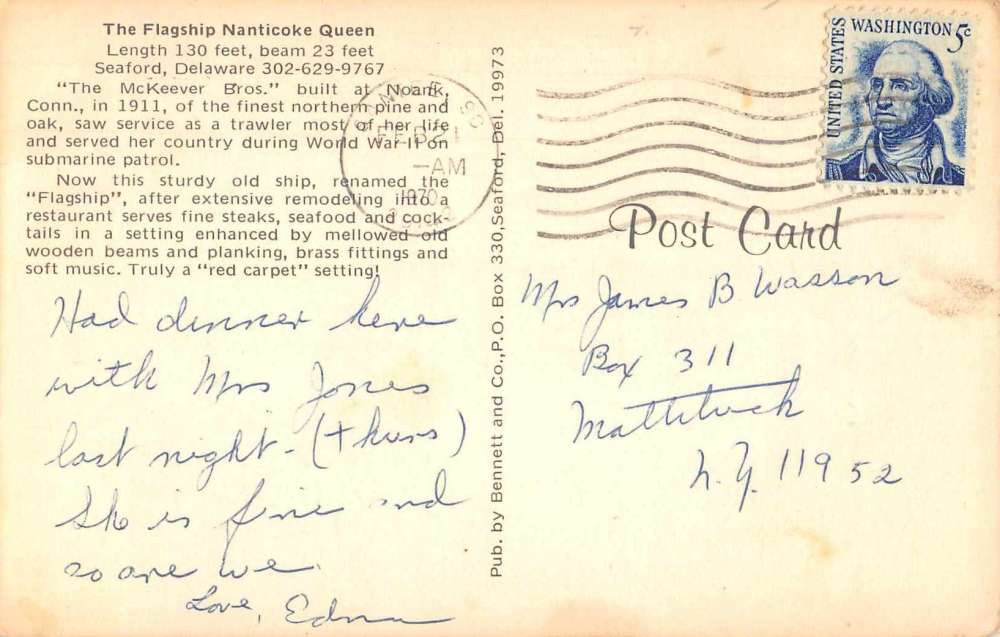 The Flagship Nanticoke Queen
Length 130 feet, beam 23 feet
Seaford, Delaware 302-629-9767
"The McKeever Bros." built at Noank,
Conn., in 1911, of the finest northern pine and
oak, saw service as a trawler most of her life
and served her country during World War II on
submarine patrol.
Now this sturdy old ship, renamed the
"Flagship", after extensive remodeling into a
restaurant serves fine steaks, seafood and cock-
tails in a setting enhanced by mellowed old
wooden beams and planking, brass fittings and
soft music. Truly a "red carpet" setting!
Had dinner here
with Mrs Jones
last night - (thurs)
She is fine and
so are we.
Love, Edna
Pub. by Bennett and Co., P.O. Box 330, Seaford, Del. 19973
FEB 21
-AM
1970
UNITED STATES
WASHINGTON 5c
Post Card
Mrs James B Wasson
Box 311
Mattituck
N.Y. 11952